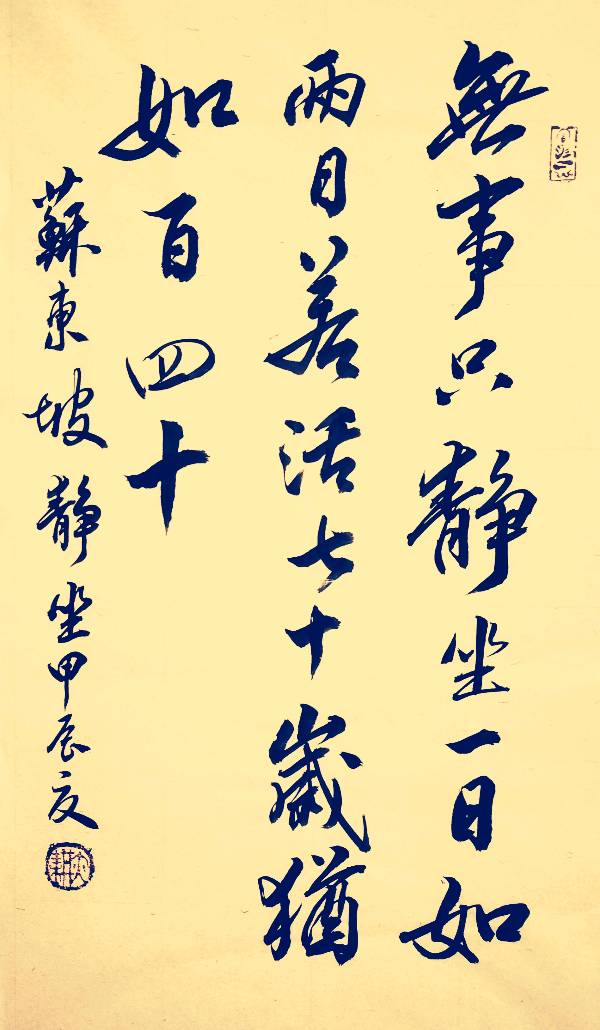 無事只靜坐一日如
兩日若活七十歲猶
如百四十
蘇東坡靜坐甲辰夏